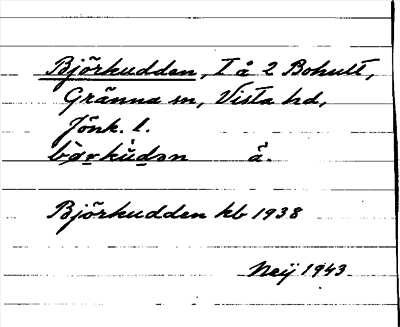 Björkudden, T å 2 Bohult,
Gränna sn, Vista hd,
Jönk. l.
å.
Björkudden kb 1938
1943